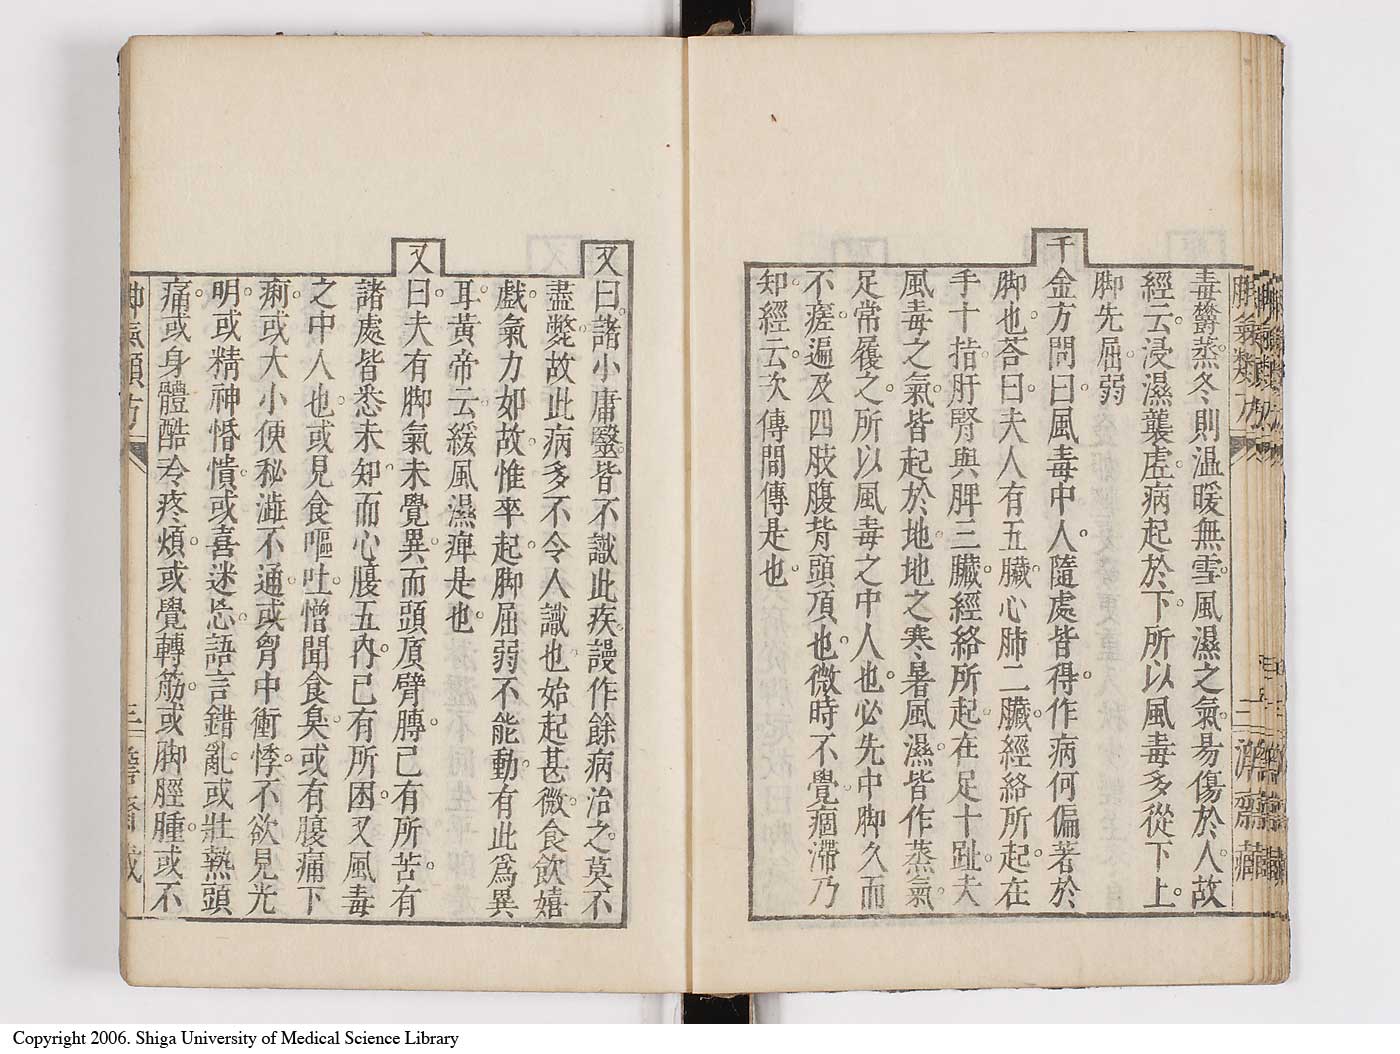 毒欝蒸。冬則温暖無雪。風濕之氣。易傷於人。故
經云。浸濕襲虛。病起於下。所以風毒多從下上。
脚先屈弱。
千金方問曰。風毒中人。隨處皆得。作病何偏著於
脚也。荅曰。夫人有五臟。心肺二臟。經絡所起在
手十指。肝腎與脾三臟。經絡所起在足十趾。夫
風毒之氣。皆起於地。地之寒暑風濕。皆作蒸氣。
足常履之。所以風毒之中人也。必先中脚。久而
不瘥。遍及四肢腹背頭頂也。微時不覺。痼滯乃
知。經云。次傳間傳是也。
又曰。諸小庸醫。皆不識此疾。謾作餘病治之。莫不
盡斃。故此病多不令人識也。始起甚微。食飲嬉
戲。氣力如故。惟卒起脚屈弱不能動。有此爲異
耳。黃帝云。緩風濕痺是也。
又曰。夫有脚氣未覺異。而頭項臂膊已有所苦。有
諸處皆悉未知。而心腹五內已有所困。又風毒
之中人也。或見食嘔吐。憎聞食臭。或有腹痛下
痢。或大小便秘澁不通。或胷中衝悸。不欲見光
明。或精神惛憒。或喜迷忘。語言錯亂。或壯熱頭
痛。或身體酷冷疼煩。或覺轉筋。或脚脛腫。或不
脚氣類方
三